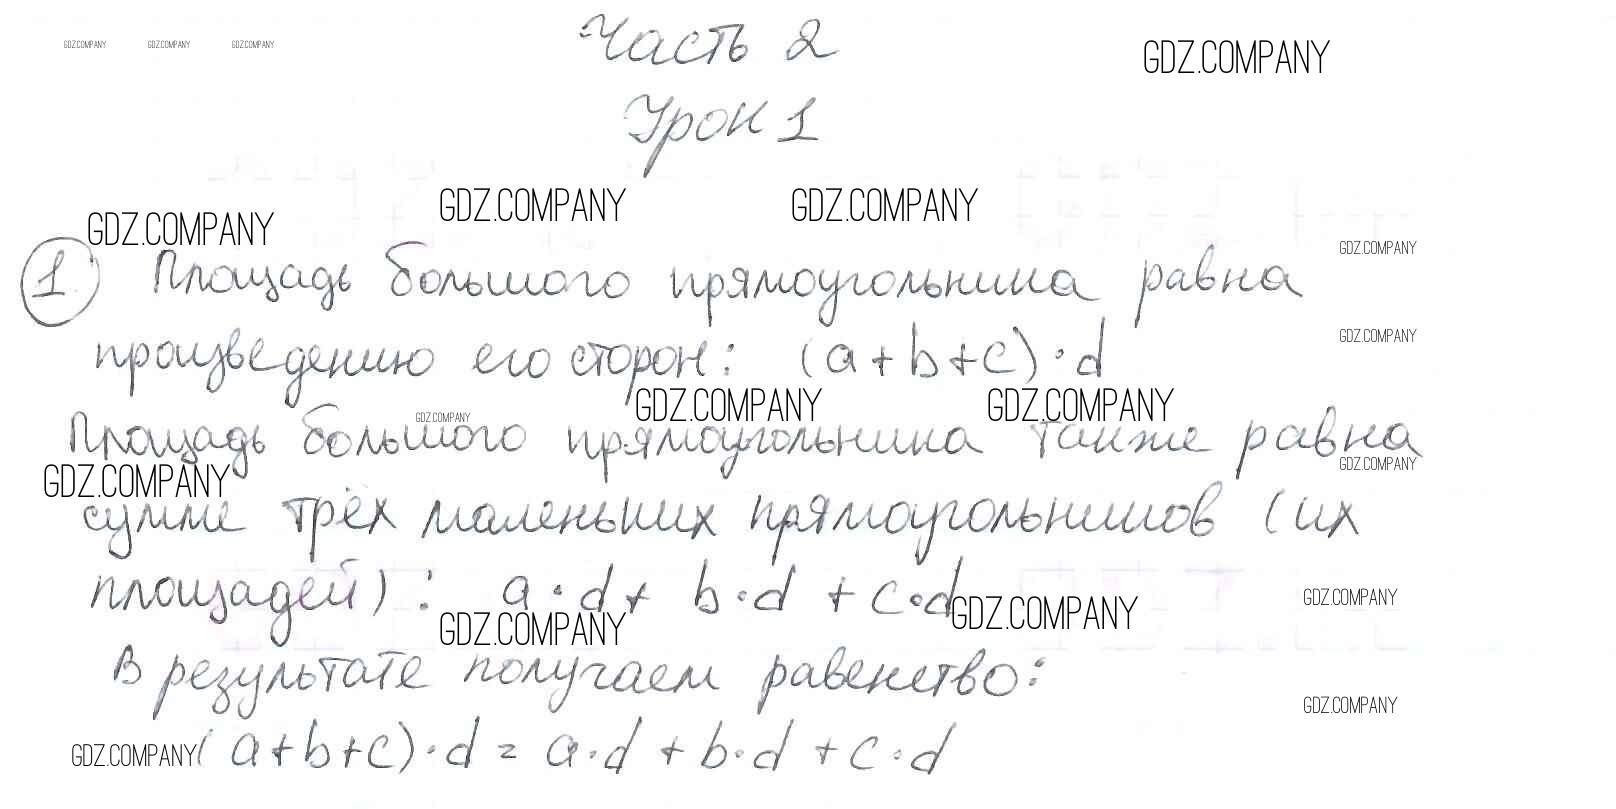 GDZ.COMPANY GDZ.COMPANY GDZ.COMPANY
Часть 2
GDZ.COMPANY
Урок 1
GDZ.COMPANY GDZ.COMPANY
GDZ.COMPANY
GDZ.COMPANY
1 Площадь большого прямоугольника равна
GDZ.COMPANY
произведению его сторон: (a+b+c)·d
GDZ.COMPANY GDZ.COMPANY GDZ.COMPANY
Площадь большого прямоугольника также равна
GDZ.COMPANY
GDZ.COMPANY
сумме трёх маленьких прямоугольников (их
площадей): a·d+ b·d + c·d
GDZ.COMPANY
GDZ.COMPANY
GDZ.COMPANY
В результате получаем равенство:
GDZ.COMPANY
GDZ.COMPANY (a+b+c)·d = a·d + b·d + c·d